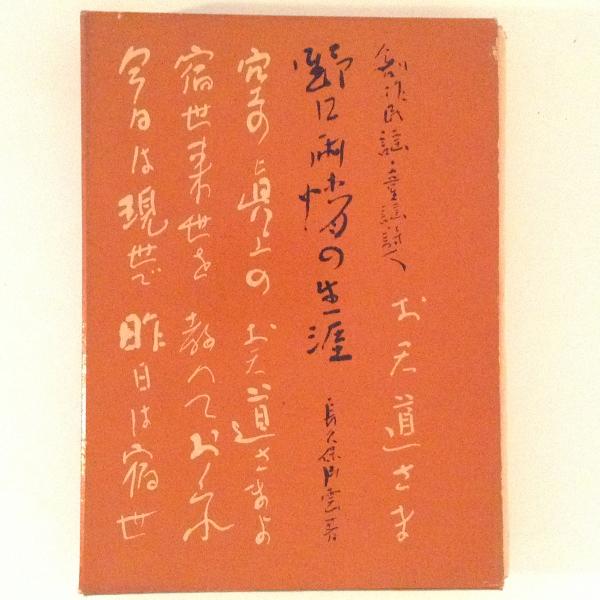 創作民謡・童謡詩人
お天道さま
野口雨情の生涯
長久保片雲著
空の真上の お天道さまよ
宿世来世を 教へておくれ
今日は現世で 昨日は宿世